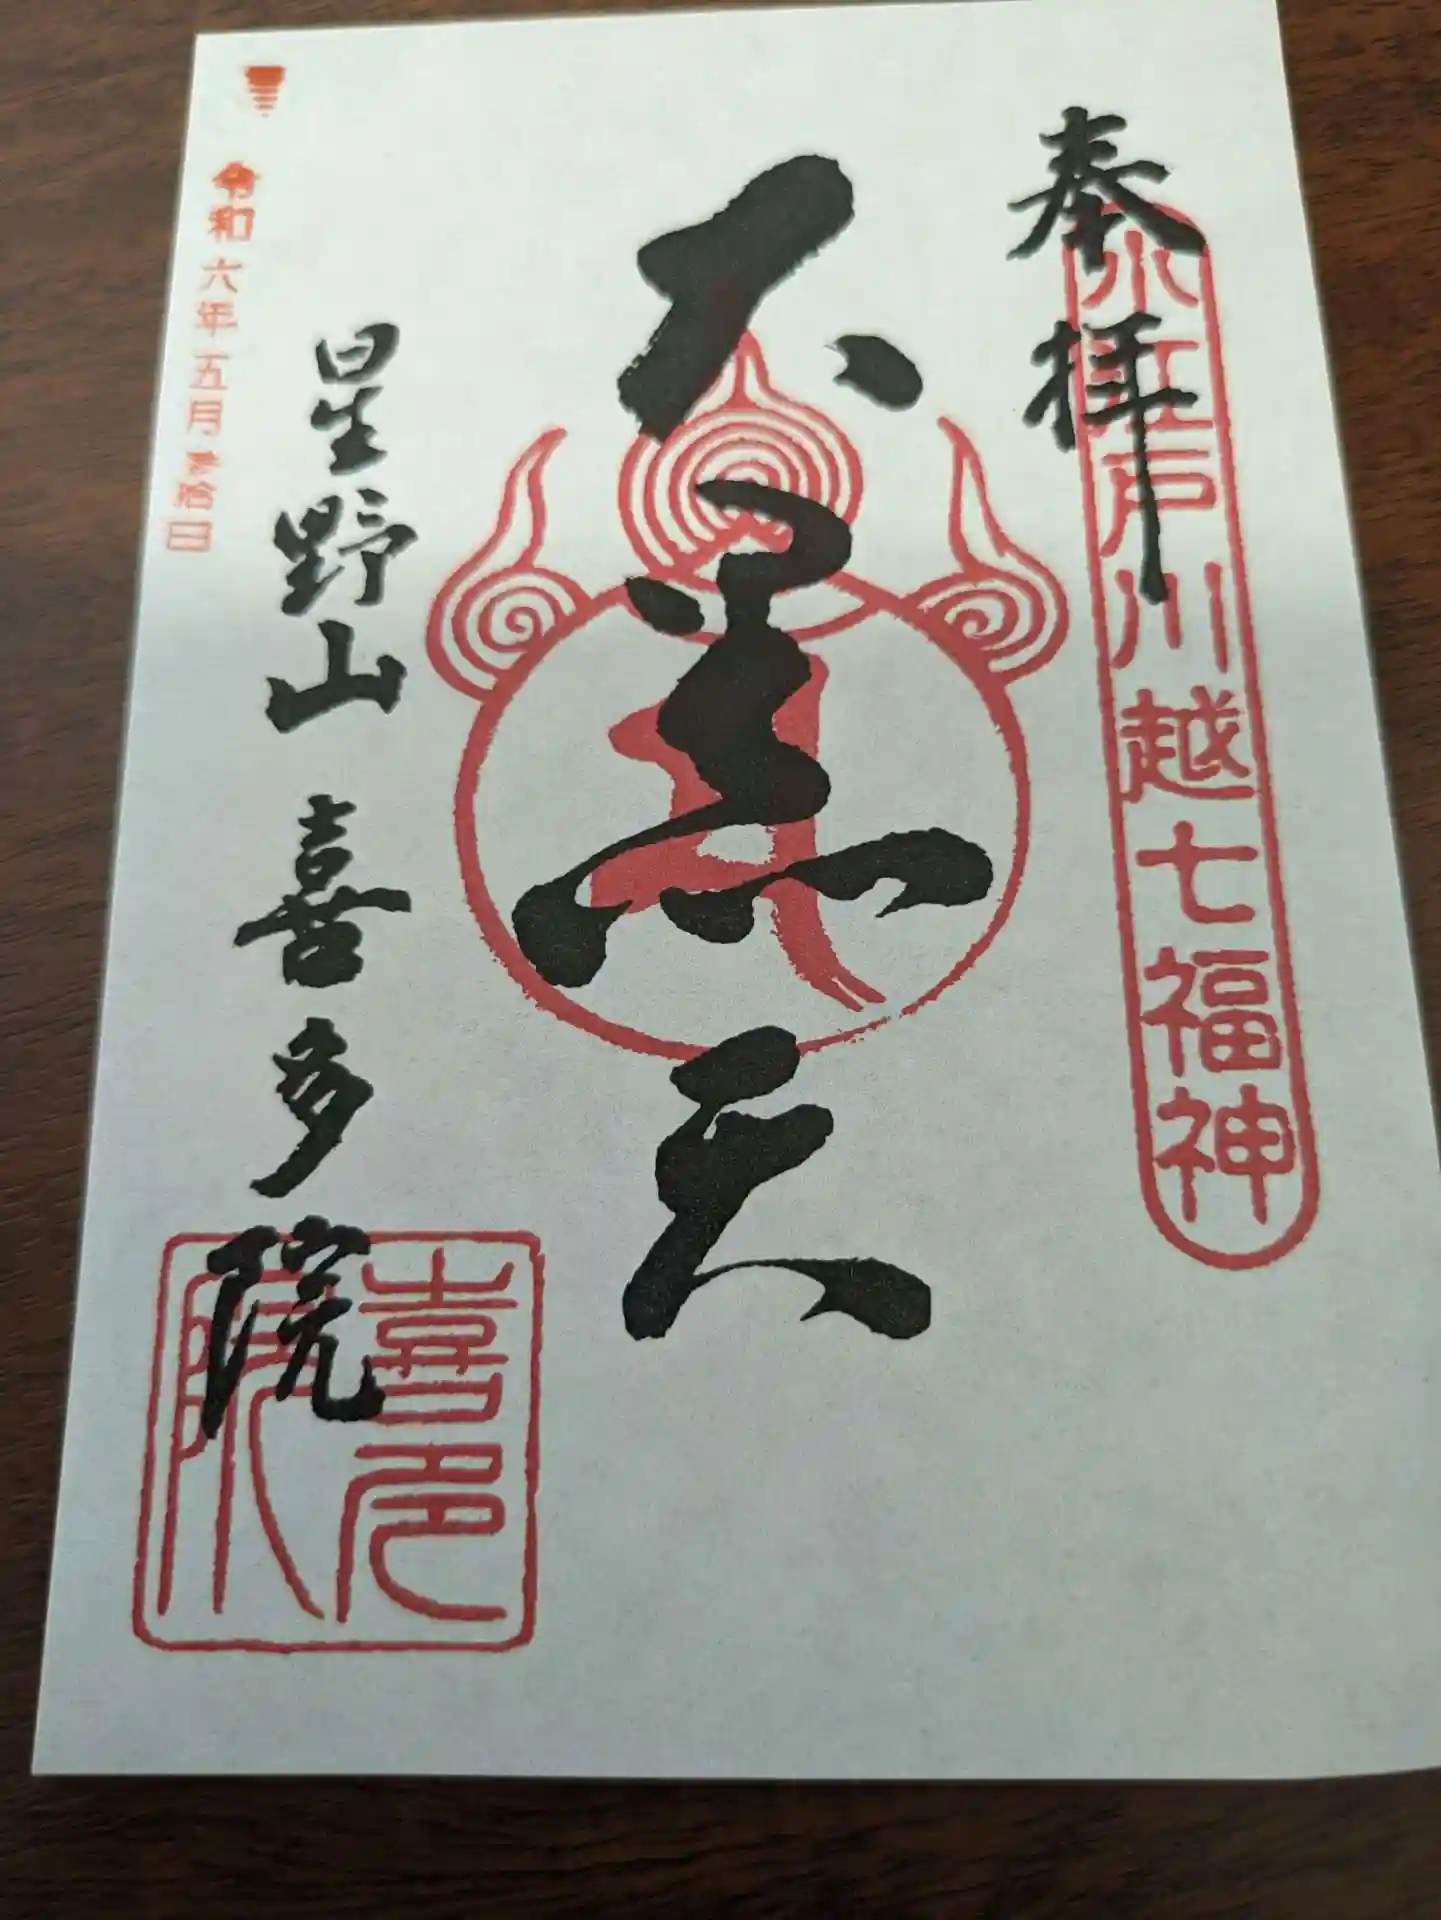 奉拝
小江戸川越七福神
大黒天
星野山 喜多院
喜多院
令和六年五月参拾日